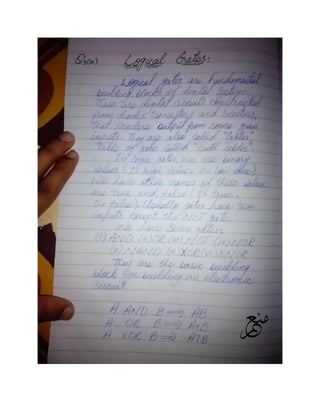 Q3(a) Logical Gates:
Logical gates are Fundamental
building blocks of digital system.
These are digital circuits constructed
from diodes, transistors and resistors,
that produce output from some given
inputs. They are also called "Gates"
Table of gate called "Truth Tables".
In some gates, we use binary
values (1 high value, 0 low value).
We have other names of these values
are true and false (1 true,
0 false). Usually gates have two
inputs except the NOT gate.
We have seven gates:
(i) AND (ii) OR (iii) NOT (iv) NOR
(v) NAND (vi) XOR (vii) XNOR
They are the basic building
block for building an electronic
circuit
A AND B ⟹ AB
A OR B ⟹ A+B
A XOR B ⟹